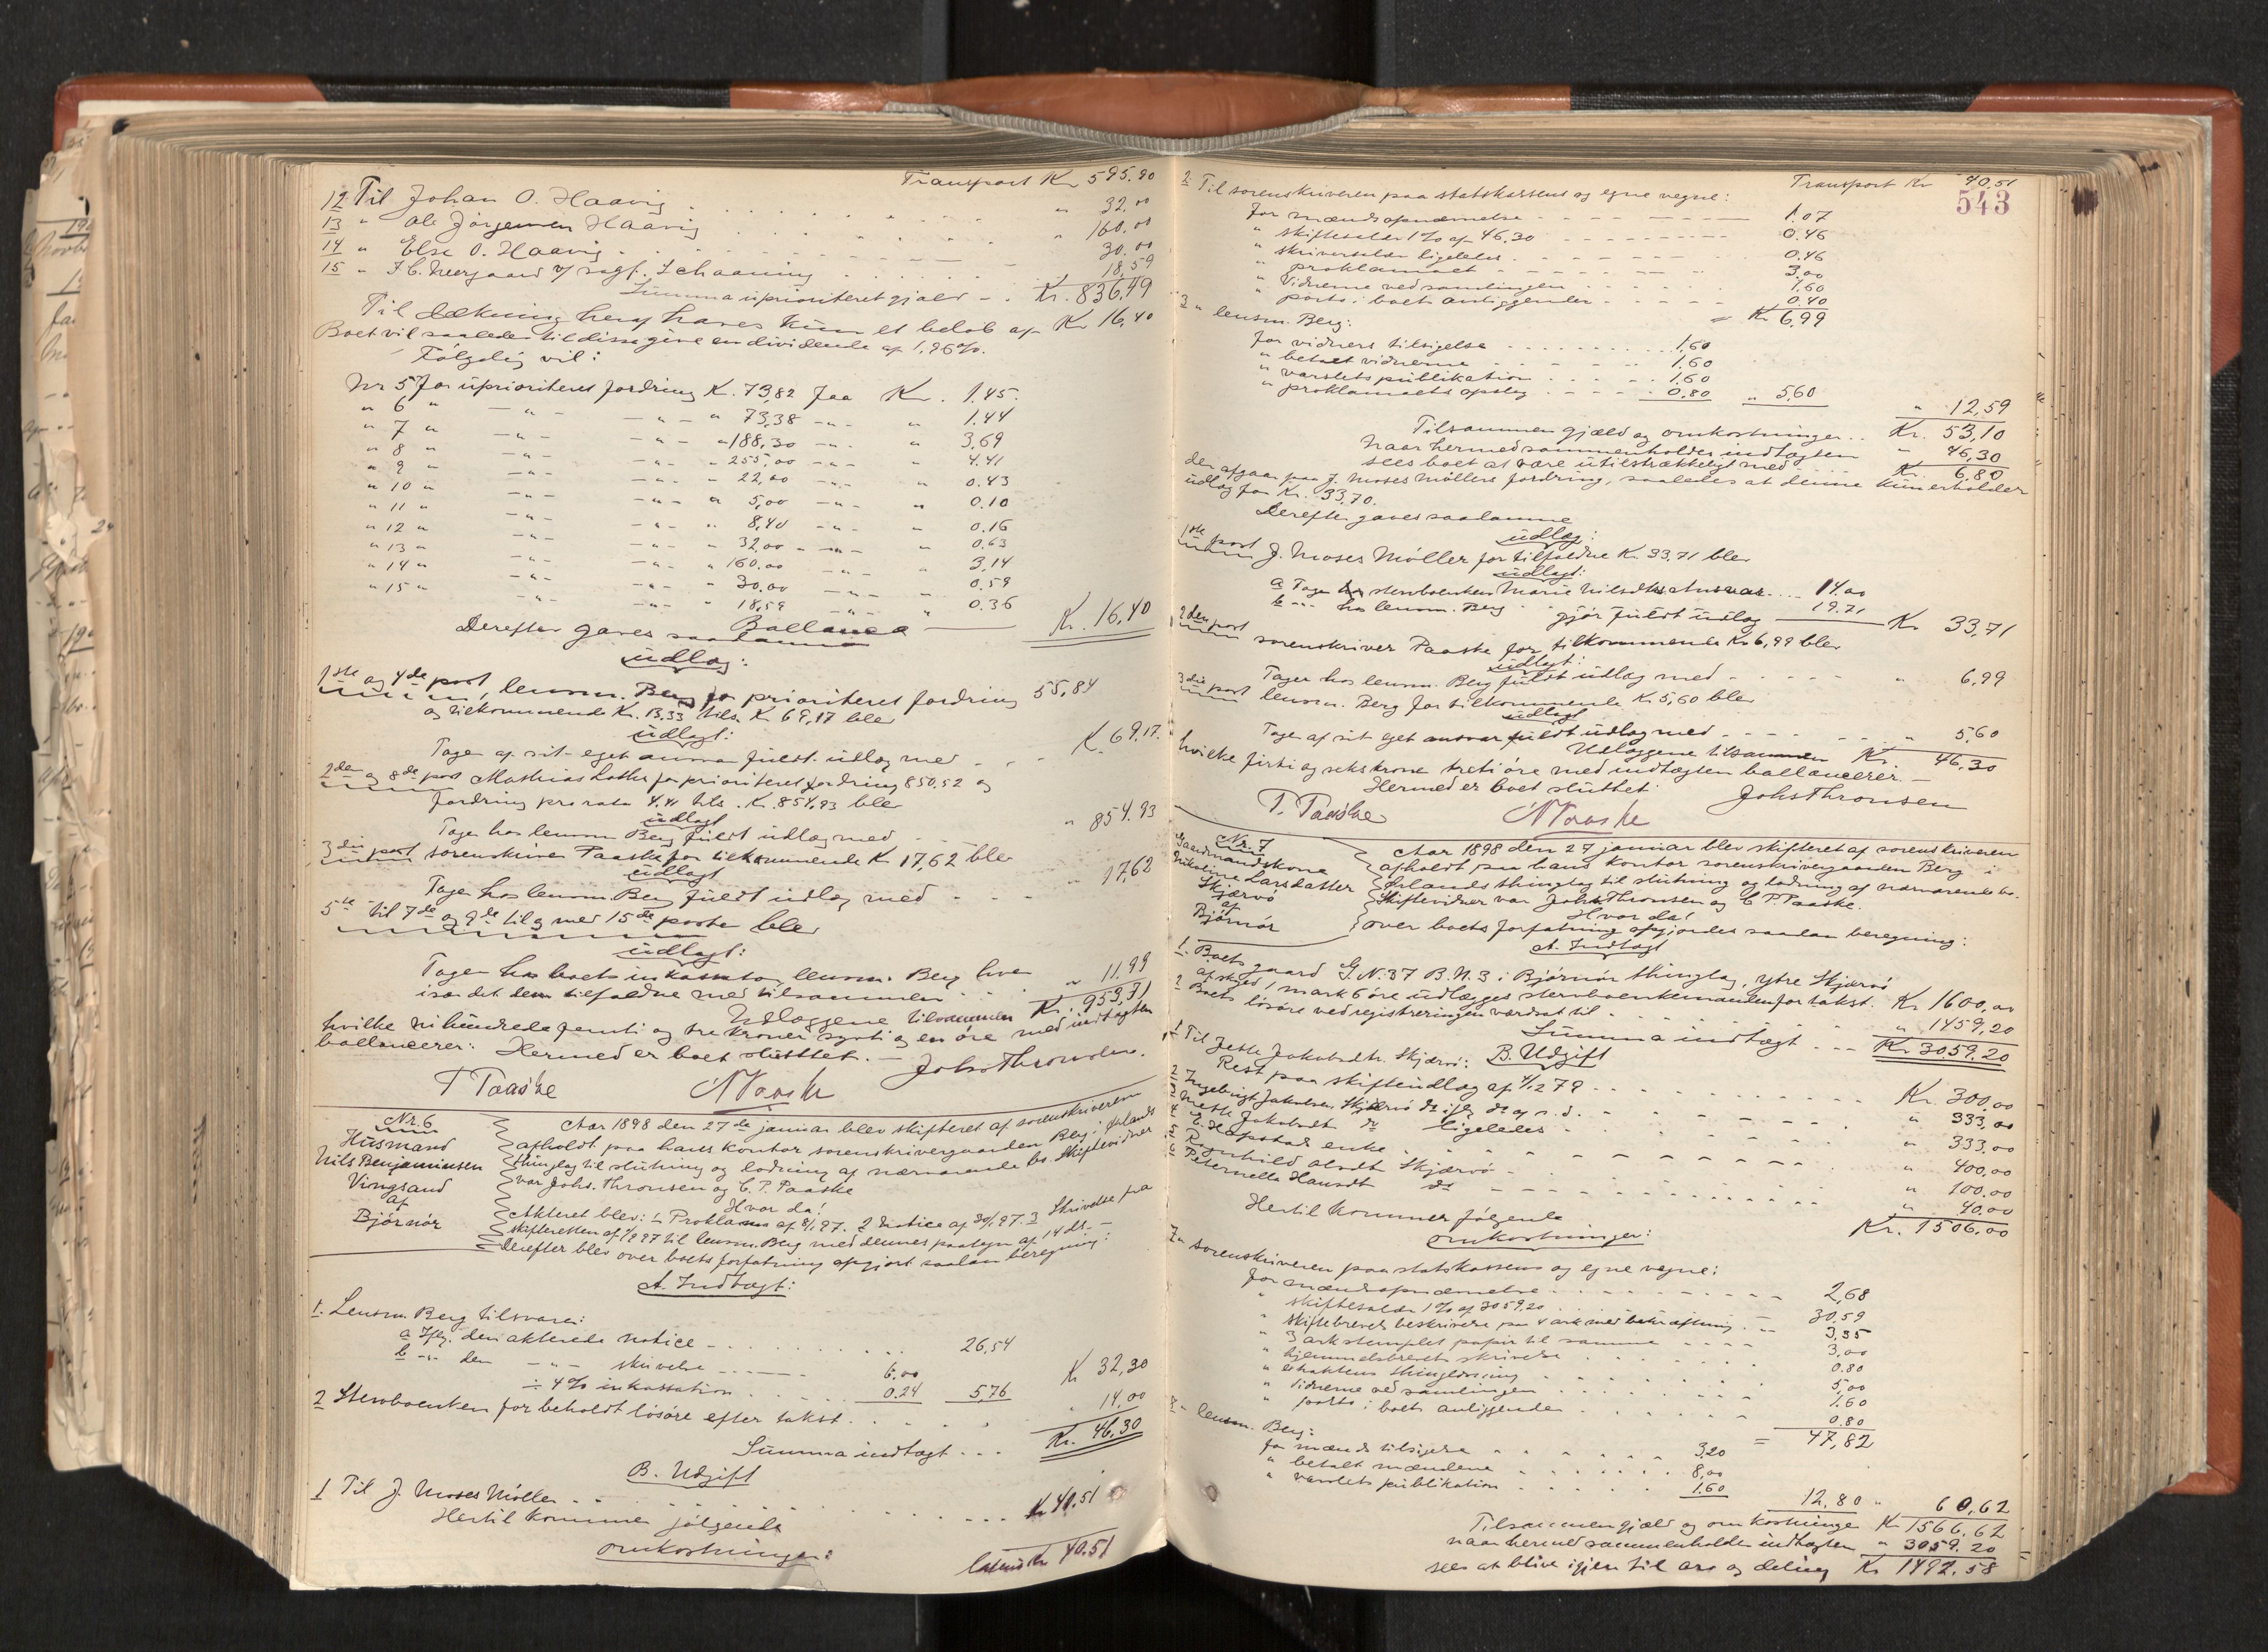 Transport Kr 595.90
12 Til Johan O. Haavig . . . . " 32.00
13 " Ole Jörgensen Haavig . . . " 160.00
14 " Else O. Haavig . . . . 30.00
15 " I C. Neergaard v/ sagf. Schaaning . . . 18,59
Summa uprioriteret gjæld - . Kr. 836,49
Til dækning heraf haves kun et belöb af Kr 16,40
Boet vil saaledes til disse give en dividende af 1,96%.
Fölgelig vil:
Nr 5 for uprioriteret fordring Kr. 73,82 faa Kr. 1.45.
" 6 " -"- -"- " 73,38 -"- " 1.44
" 7 " -"- -"- " 188,30 -"- " 3,69
" 8 " -"- -"- " 255,00 -"- " 4.41
" 9 " -"- -"- " 22,00 -"- " 0.43
" 10 " -"- -"- " 5,00 -"- " 0.10
" 11 " -"- -"- " 8,40 -"- " 0.16
" 12 " -"- -"- " 32,00 -"- " 0,63
" 13 " -"- -"- " 160.00 -"- " 3,14
" 14 " -"- -"- " 30.00 -"- " 0.59
" 15 " -"- -"- " 18,59 -"- " 0.36
Ballance Kr. 16,40
Derefter gaves saadanne
udlæg:
1ste og 4de post, lensm. Berg for prioriteret fordring 55,84
og tilkommende Kr. 13,33 tils. Kr 69,17 blev
udlagt:
Tager af sit eget ansvar fuldt udlæg med . . . Kr. 69,17.
2den og 8de post Mathias Lothe for prioriteret fordring 850,52 og
fordring pro rata 4.41 tils. Kr. 854,93 blev
udlagt
Tager hos lensm Berg fuldt udlæg med . . " 854.93
3die post sorenskriver Paaske for tilkommende Kr 17,62 blev
udlagt
Tager hos lensm Berg fuldt udlæg med - - - " 17,62
5te til 7de og 9de til og med 15de poste blev
udlagt:
Tager hos boets inkassator lensm. Berg hver
især det dem tilfaldne med tilsammen . . . " 11,99
Udlæggene tilsammen Kr. 953,71
hvilke nihundrede femti og tre kroner sytti og en öre med indtægten
ballancerer. Hermed er boet sluttet. — Johs Thronsen.
T Paaske
Nr. 6
Husmand
Nils Benjaminsen
Vingsand
af
Björnör
Aar 1898 den 27de januar blev skifteret af sorenskriveren
afholdt paa hans kontor sorenskrivergaarden Berg i Örlands
thinglag til slutning og lodning af nærværende bo. Skiftevidner
var Johs. Thronsen og C. P. Paaske
Hvor da!
Akteret blev: 1 Proklama af 8/1 97. 2 Notice af 30/1 97. 3 Skrivelse fra
skifteretten af 1/2 97 til lensm. Berg med dennes paategn af 14 ds. —
Derefter blev over boets forfatning afgjort saadan beregning:
A. Indtægt:
1. Lensm. Berg tilsvarer:
a Iflg. den akterede notice - . . . . . 26,54
b -"- den -"- skrivelse 6.00
÷ 4% inkassation . . . 0.24 5,76 Kr 32,30
2 Stervboenken for beholdt lösöre efter takst . . . . " 14,00
Summa indtægt . . . Kr. 46.30
B. Udgift
1 Til J. Moses Möller . . . . . . . . Kr 40.51
Hertil kommer fölgende
omkostninger:
Latus Kr 40.51
543
Transport Kr 40.51
2 Til sorenskriveren paa statskassens og egne vegne:
for mændsopnævnelse - - - 1.07
" skiftesalær 1% af 46.30 - - - 0.46
" skriversalær ligeledes . - - - 0.46
" proklamaet - - - 3,00
" Vidnerne ved samlingen . . . 1,60
" porto i boets anliggender - - - 0.40
= Kr 6,99
3 " lensm. Berg:
for vidners tilsigelse . . . . 1.60
" betalt vidnerne . . . 1,60
" varslets publikation . . . 1.60
" proklamaets opslag . . . 0.80 " 5,60
" 12,59
Tilsammen gjæld og omkostninger . . Kr. 53,10
naar hermed sammenholdes indtægten " 46,30
sees boet at være utilstrækkeligt med . . . Kr. 6,80
der afgaar paa J. Moses Möllers fordring, saaledes at denne kun erholder
udlæg for Kr. 33.70.
Derefter gaves saadanne
udlæg:
1ste post J. Moses Möller for tilfaldne Kr. 33,71 blev
udlagt:
a Tager hos stervboenken Marie Nilsdtrs Ansvar . . . 14.00
b -"- hos lensm. Berg 19.71
gjör fuldt udlæg Kr 33,71
2den post sorenskriver Paaske for tilkommende Kr 6,99 blev
udlagt:
Tager hos lensm. Berg fuldt udlæg med - - - " 6,99
3die post lensm. Berg for tilkommende Kr 5,60 blev
udlagt
Tager af sit eget ansvar fuldt udlæg med - - - " 5,60
Udlæggene tilsammen Kr. 46.30
hvilke firti og seks krone treti öre med indtægten ballancerer. —
Hermed er boet sluttet. Johs Thronsen
T. Paaske
Nr. 7
Gaardmandskone
Nikoline Larsdatter
Skjærvö
af
Björnör
Aar 1898 den 27 januar blev skifteret af sorenskriveren
afholdt paa hans kontor sorenskrivergaarden Berg i
Örlands thinglag til slutning og lodning af nærværende bo.
Skiftevidner var Johs Thronsen og C P. Paaske.
Hvor da!
over boets forfatning afgjordes saadan beregning:
A. Indtægt
1. Boets gaard G. N. 37 B. N. 3 i Björnör thinglag, ytre Skjærvö
af skyld 1 mark 6 öre udlægges stervboenkemanden for takst. Kr 1600,00
2 Boets lösöre ved registreringen værdsat til . . . . " 1459,20
Summa indtægt . . - - Kr 3059.20
B. Udgift
1 Til Jette Jakobsdtr. Skjærvö:
Rest paa skifteudlæg af 4/12 79 . . . . Kr. 300,00
2 Ingebrigt Jakobsen Skjærvö do iflg do og s. d. . . . " 333,00
3 Mette Jakobsdtr do ligeledes - . . . " 333,00
4 E. Hopstad enke . . . . " 400,00
5 Ragnhild Olsdtr Skjærvö - . . . " 100.00
6 Peternella Hansdtr do - . . . " 40.00
Kr. 1506,00
Hertil kommer fölgende
omkostninger:
7 " sorenskriveren paa statskassens og egne vegne:
for mændsopnævnelse - . . . 2,68
" skiftesalær 1% af 3059,20 . . . 30,59
" skiftebrevets beskrivelse paa 4 ark med bekræftning . - 3,35
" 3 ark stemplet papir til samme - - - 3,00
" hjemmelsbrevets skrivelse . . . 0.80
" extraktens thinglæsning . . . 5,00
" Vidnerne ved samlingen . . . 1.60
" porto i boets anliggender . . . 0.80
= 47,82
8 " lensm. Berg:
for mænds tilsigelse . . . 3,20
" betalt mændene . . . 8,00
" varslets publikation . . . 1.60
12,80 " 60,62
Tilsammen gjæld og omkostninger Kr 1566,62
naar hermed sammenholdes indtægten " 3059.20
sees at blive igjen til arv og deling Kr 1492.58